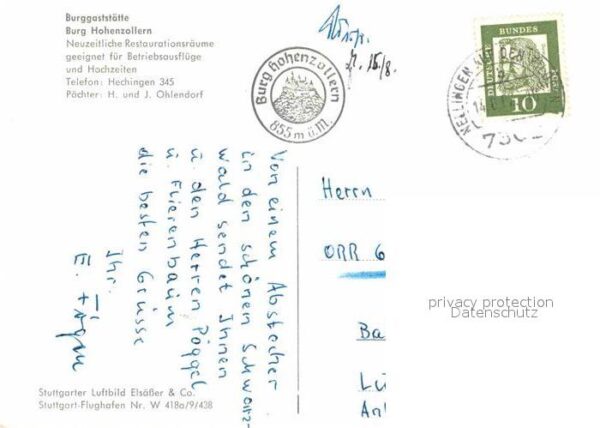 Burggaststätte
Burg Hohenzollern
Neuzeitliche Restaurationsräume
geeignet für Betriebsausflüge
und Hochzeiten
Telefon: Hechingen 345
Pächter: H. und J. Ohlendorf
15/8.
Burg Hohenzollern
855 m ü.M.
DEUTSCHE BUNDESPOST
10
NELLINGEN
14.
Von einem Abstecher
in den schönen Schwarz-
wald sendet Ihnen
u. den Herren Pöggel
u. Flierenbaum
die besten Grüsse
Ihr.
E.
Herrn
ORR G
Ba
Lü
An
privacy protection
Datenschutz
Stuttgarter Luftbild Elsäßer & Co.
Stuttgart-Flughafen Nr. W 418a/9/438